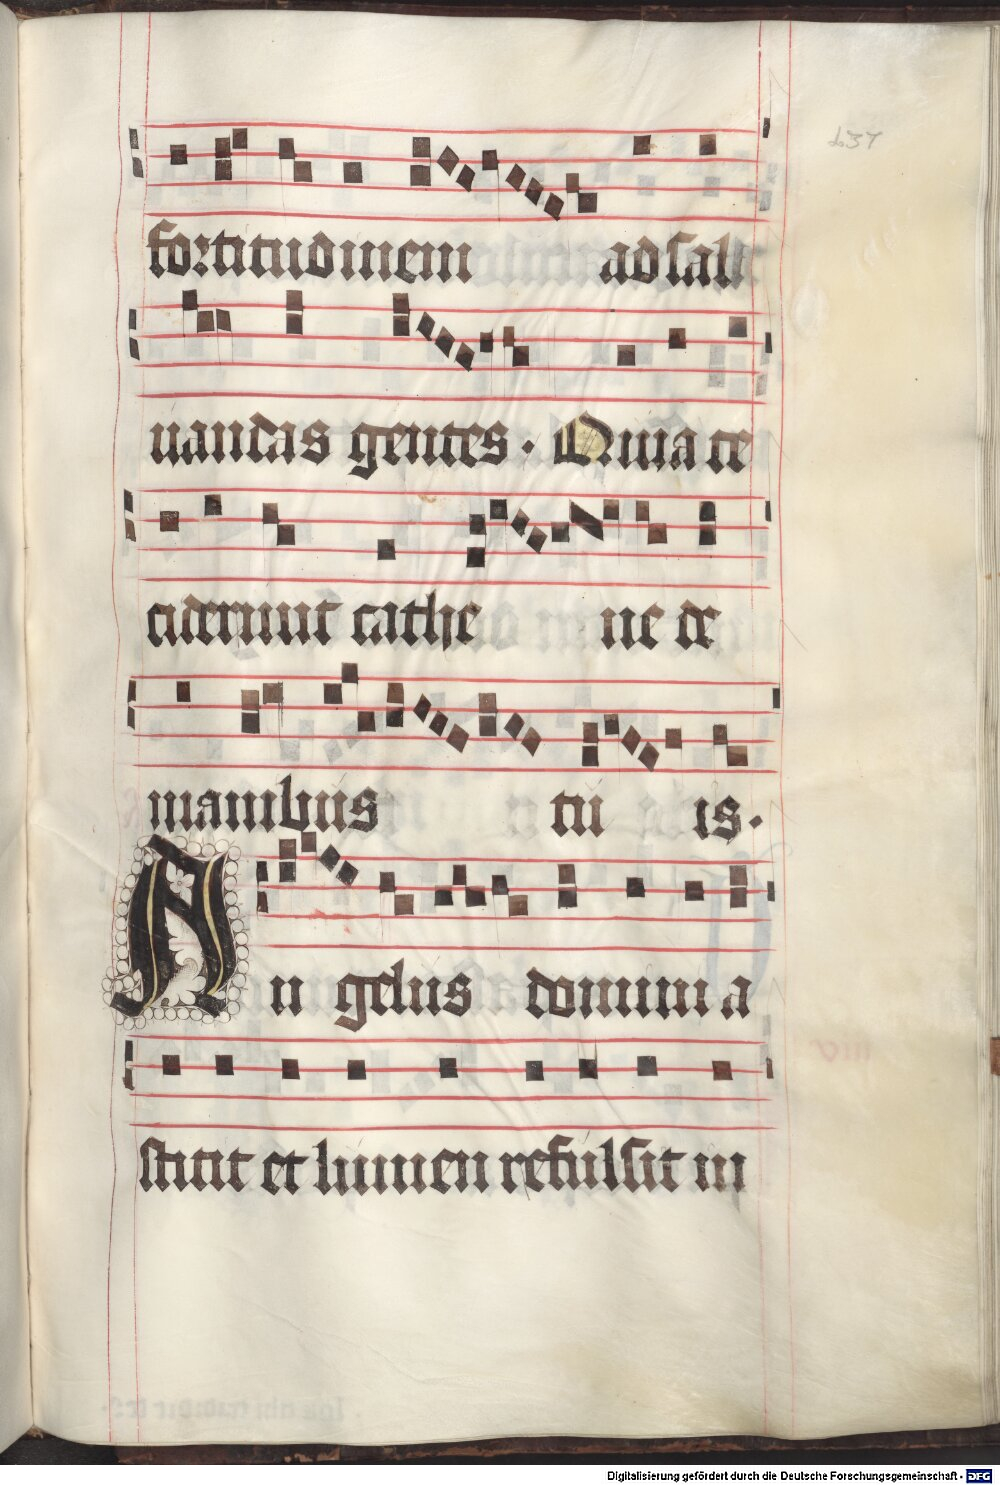 637
fortitudinem ad sal
uandas gentes. Quia ce
ciderunt cathe ne de
manibus tu is.
An gelus domini a
stitit et lumen refulsit in
Digitalisierung gefördert durch die Deutsche Forschungsgemeinschaft - DFG